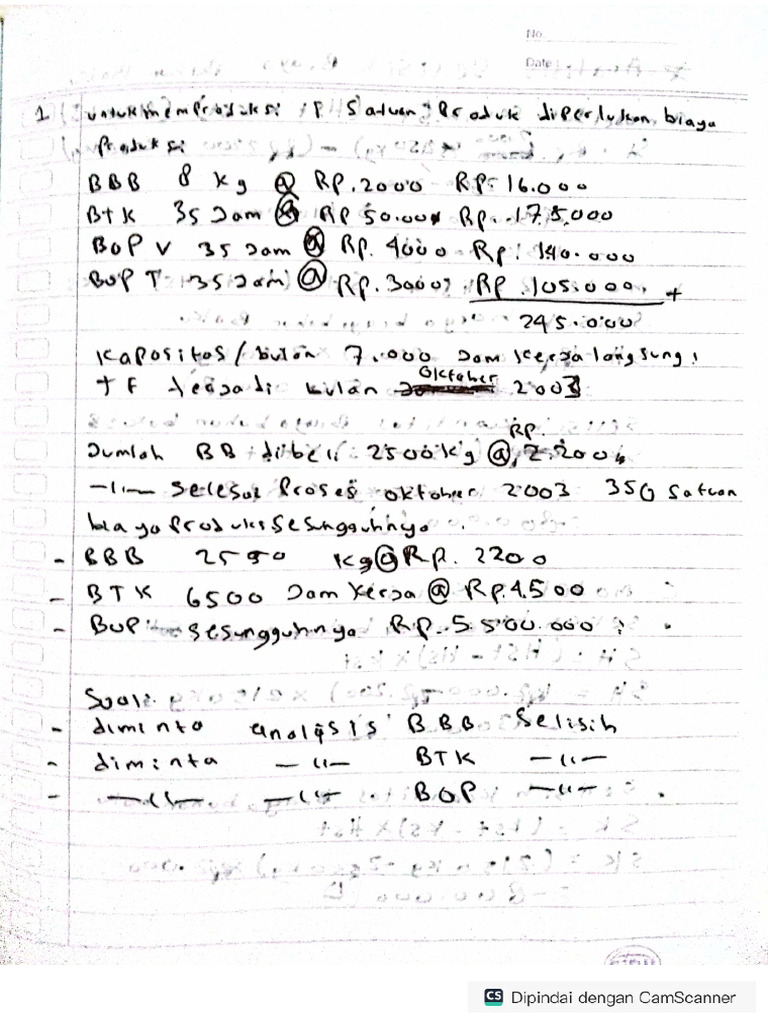 No.
Date
1 untuk memproduksi 1 P Satuan Produk diperlukan biaya
Produksi
BBB 8 kg @ Rp.2000 Rp. 16.000
BTK 35 Jam @ Rp 50.00 Rp. 175.000
BOP V 35 Jam @ Rp. 4000 Rp. 140.000
BOP T 35 Jam @ Rp.3000, Rp .105.000, +
245.000
Kapasitas / bulan 7.000 Jam kerja langsung,
terjadi bulan Oktober 2003
Jumlah BB dibeli 2500 kg @ Rp. 2.200
-11- Selesai Proses oktober 2003 350 Satuan
biaya Produksi Sesungguhnya .
- BBB 2590 kg @ Rp. 2200
- BTK 6500 Jam Kerja @ Rp.4.500
- BOP Sesungguhnya Rp. 5.500.000
Soal:
- diminta analisis BBB Selisih
- diminta -11- BTK -11-
- -11- -11- BOP -11- .
CS Dipindai dengan CamScanner